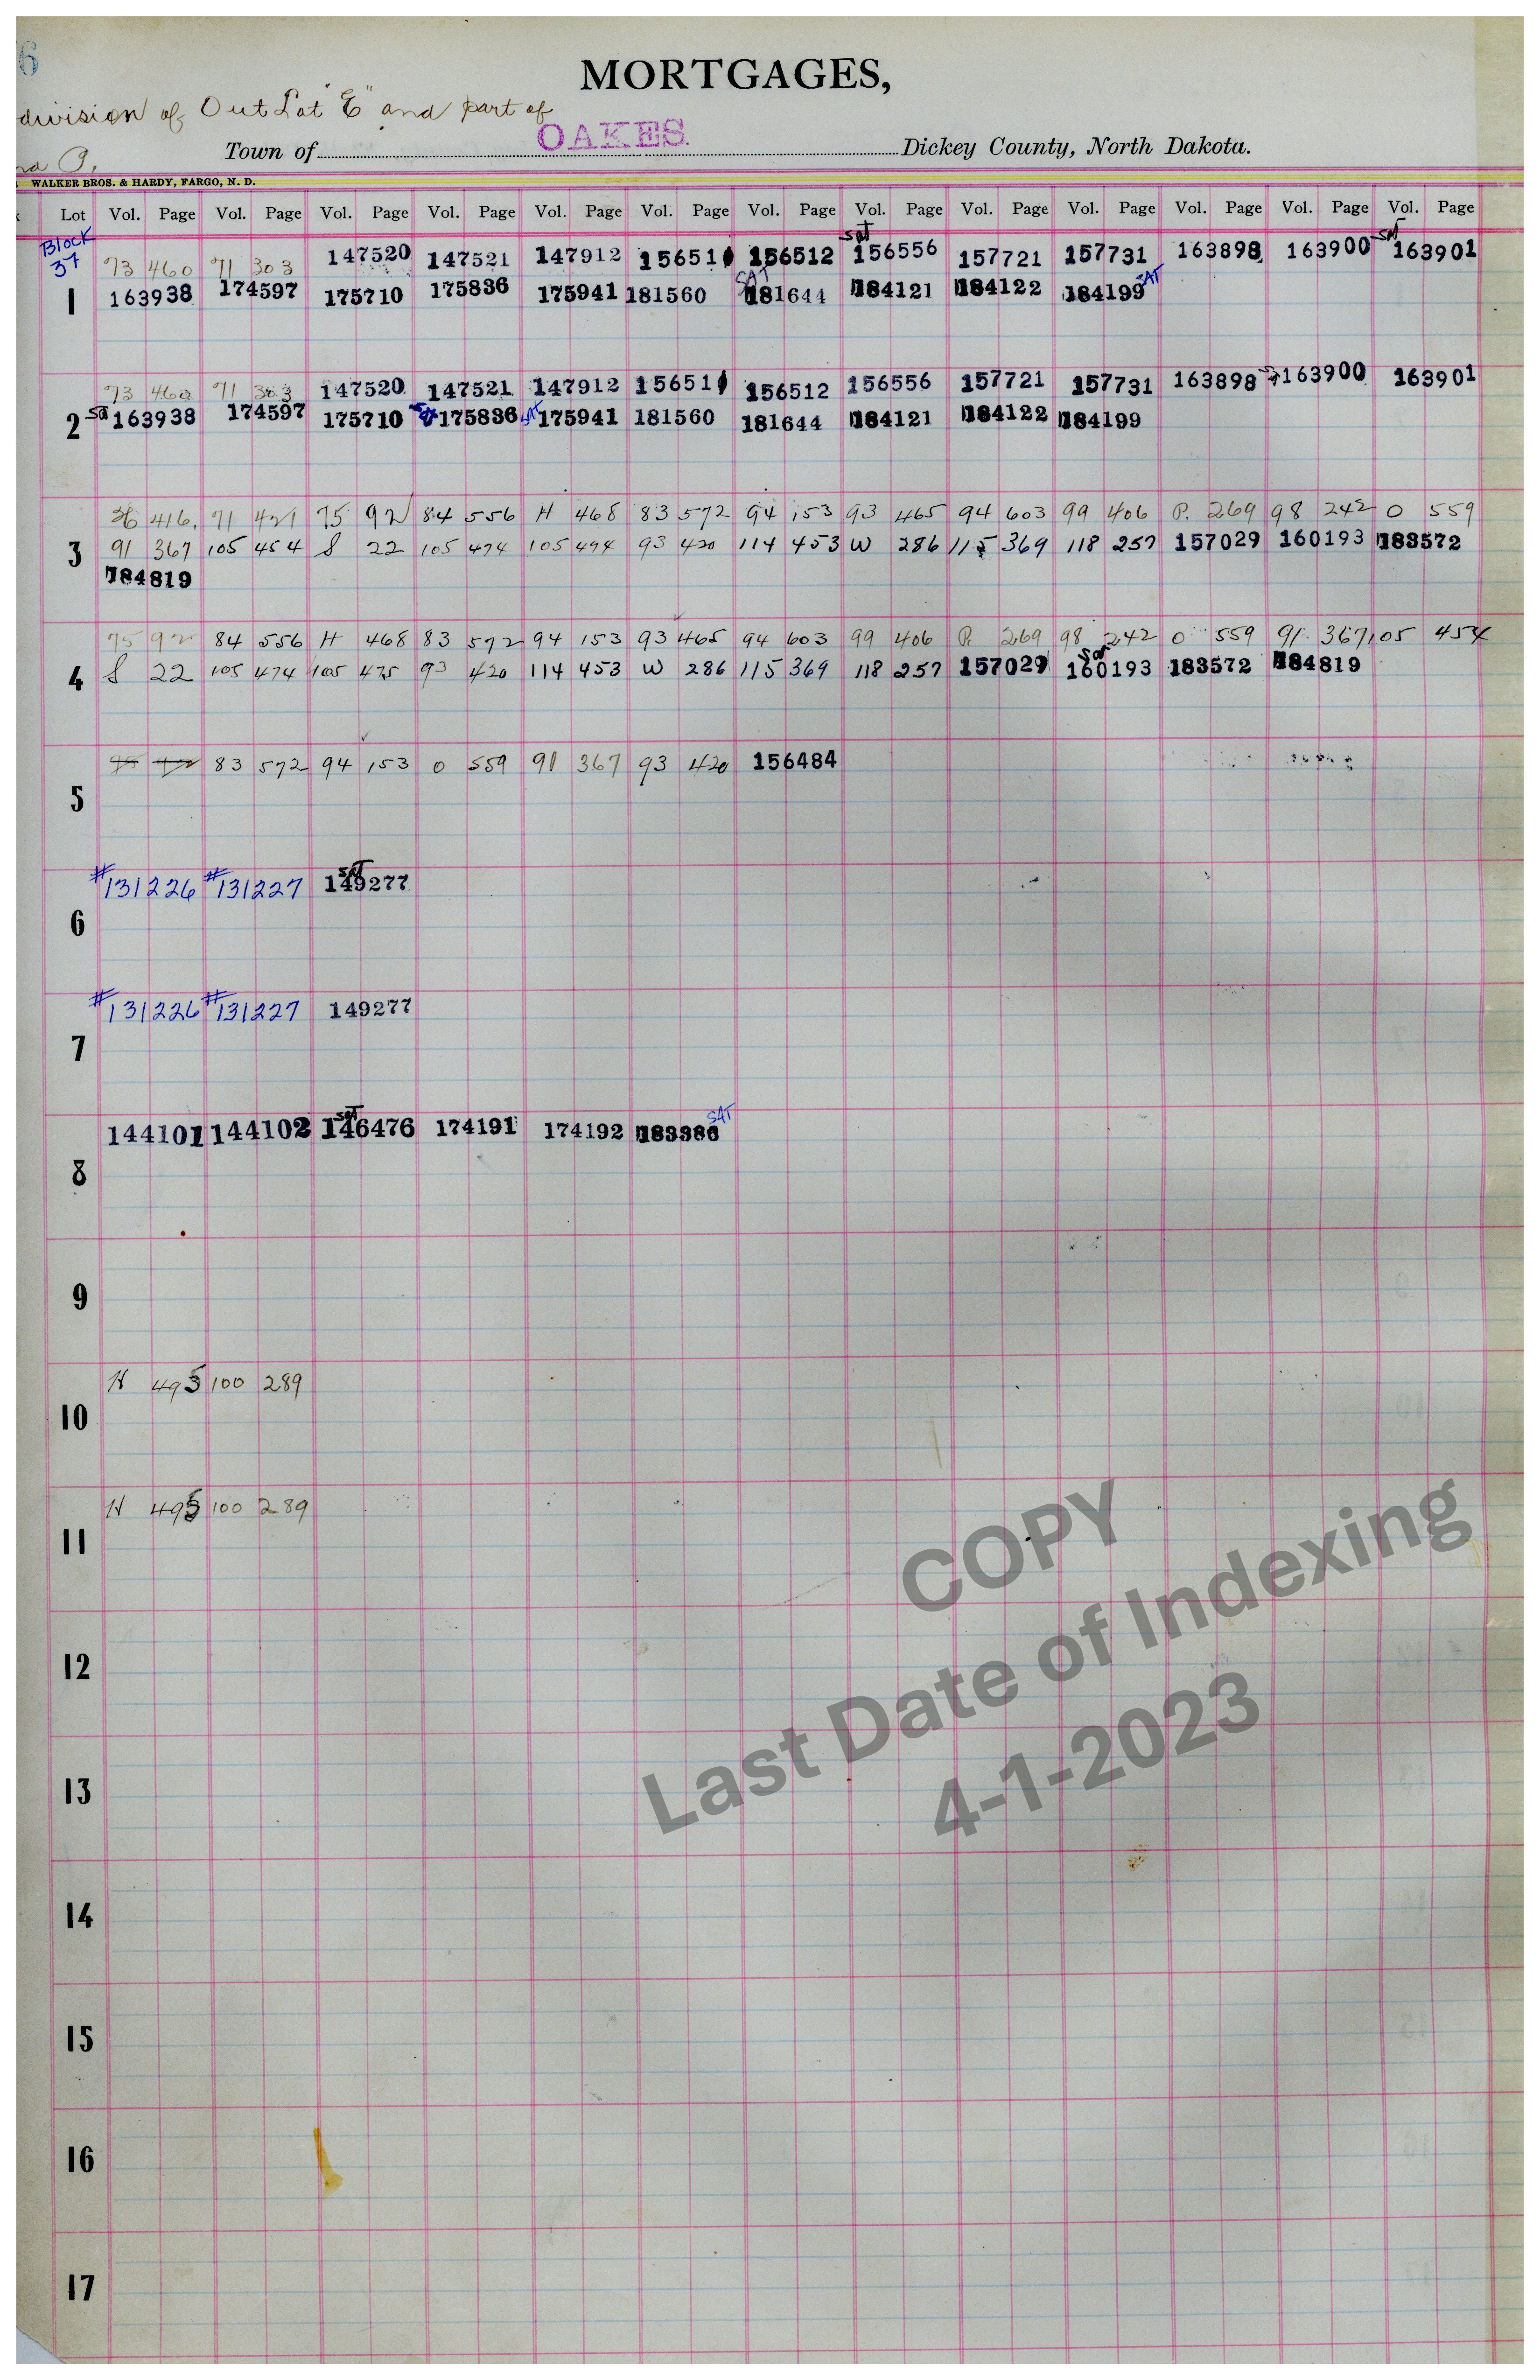 6
MORTGAGES,
division of Out Lot "E" and part of
OAKES.
Town of Dickey County, North Dakota.
WALKER BROS. & HARDY, FARGO, N. D.
Lot Vol. Page Vol. Page Vol. Page Vol. Page Vol. Page Vol. Page Vol. Page Vol. Page Vol. Page Vol. Page Vol. Page Vol. Page Vol. Page
Block 37
73 460 71 303 147520 147521 147912 156511 156512 sat 156556 157721 157731 163898 163900 SAT 163901
1 163938 174597 175710 175836 175941 181560 SAT 181644 184121 184122 184199 SAT
73 460 71 303 147520 147521 147912 156511 156512 156556 157721 157731 163898 163900 163901
2 sa 163938 174597 175710 175836 SAT 175941 181560 181644 184121 184122 184199
36 416 71 421 75 92 84 556 H 468 83 572 94 153 93 465 94 603 99 406 P. 269 98 242 O 559
3 91 367 105 454 S 22 105 474 105 474 93 420 114 453 W 286 115 369 118 257 157029 160193 183572
184819
75 92 84 556 H 468 83 572 94 153 93 465 94 603 99 406 P. 269 98 242 O 559 91 367 105 454
4 S 22 105 474 105 475 93 420 114 453 W 286 115 369 118 257 157029 sat 160193 183572 184819
83 572 94 153 O 559 91 367 93 420 156484
5
#131226 #131227 SAT 149277
6
#131226 #131227 149277
7
144101 144102 sat 146476 174191 174192 183386 SAT
8
9
H 495 100 289
10
H 495 100 289
11
12
13
14
15
16
17
COPY
Last Date of Indexing
4-1-2023